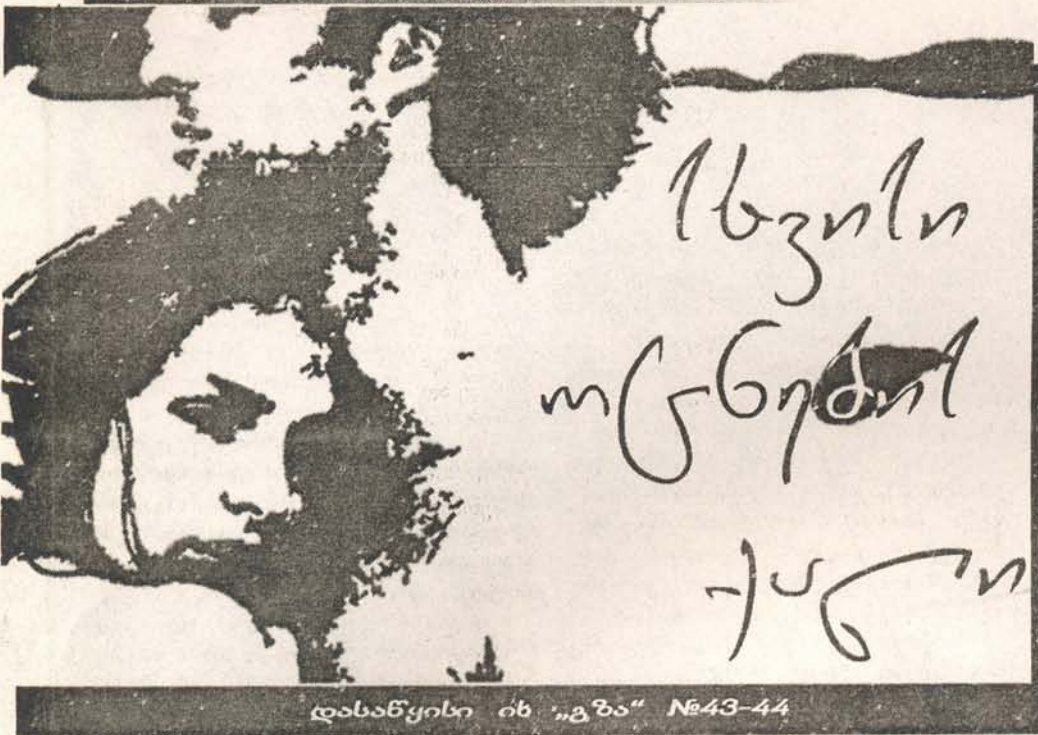 სხვისი
ოცნების
ქალი
დასაწყისი იხ „გზა“ №43-44